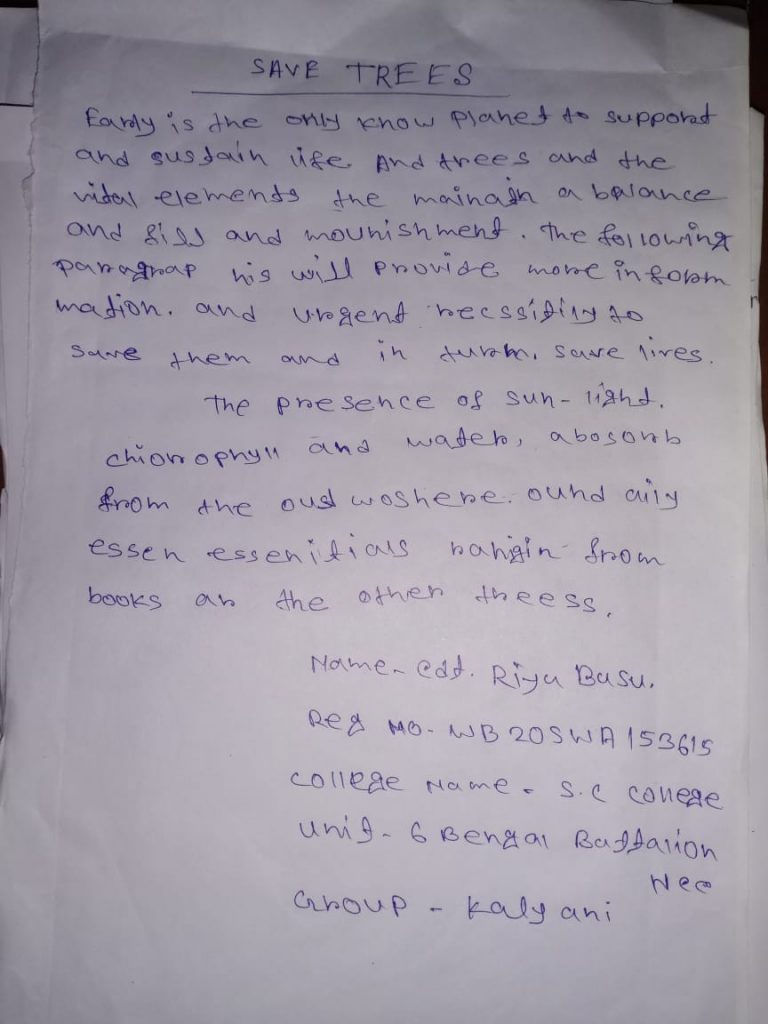 SAVE TREES
Eardy is the only know planet to supporat
and sustain life. And trees and the
vital elements the mainain a balance
and fill and mounishment. The following
paragrap his will provide more inform
mation. and urgent necssitiy to
save them and in turm. save lives.
The presence of sun-light.
chlorophyll and water, abosorb
from the oust woshere. ound aily
essen essenitials rangin from
books ar the other treess.
Name- cdt. Riya Basu.
Reg No- WB20SWA153615
College Name - S.C College
Unit- 6 Bengal Battalion
Ncc
Group - Kalyani